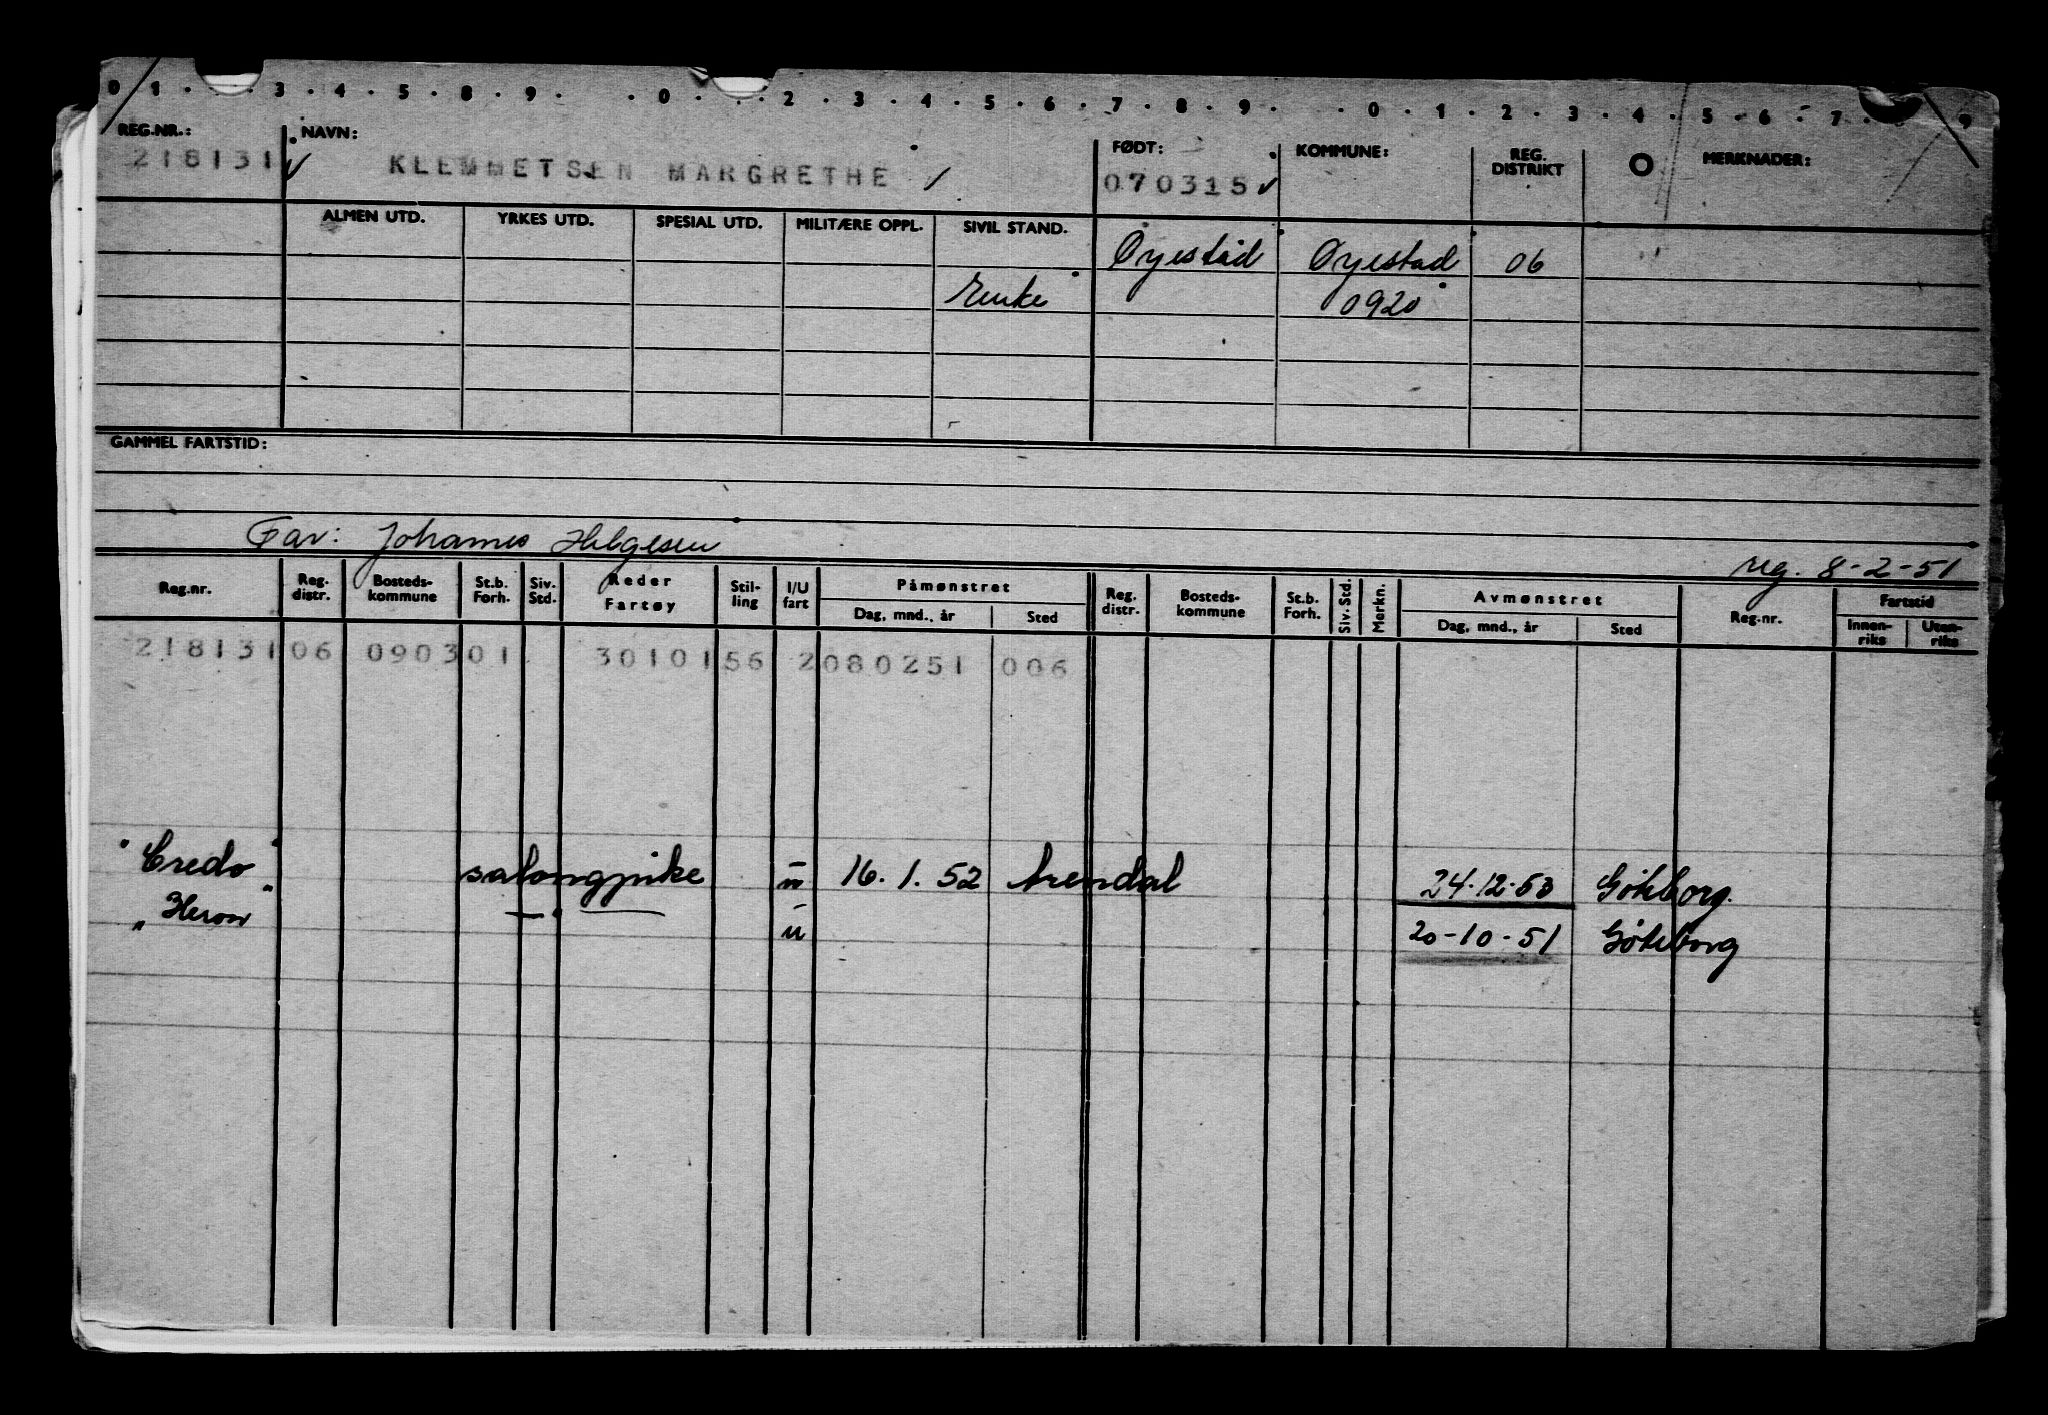 0 1 · · · 3 · 4 · 5 · 8 · 9 · · 0 · · · 2 · 3 · 4 · 5 · 6 · 7 · 8 · 9 · · 0 · 1 · 2 · 3 · 4 · 5 · 6 · 7 · 9
REG.NR.: NAVN: FØDT: KOMMUNE: REG. DISTRIKT O MERKNADER:
218131 KLEMMETSEN MARGRETHE 070315
ALMEN UTD. YRKES UTD. SPESIAL UTD. MILITÆRE OPPL. SIVIL STAND.
Øyestad Øyestad 06
Enke 0920
GAMMEL FARTSTID:
Far: Johannes Helgesen
reg. 8-2-51
Reg.nr. Reg. distr. Bosteds-kommune St.b. Forh. Siv. Std. Reder Fartøy Stil-ling I/U fart Påmønstret Reg. distr. Bosteds-kommune St.b. Forh. Siv. Std. Merkn. Avmønstret Reg.nr. Fartstid
Dag, mnd., år Sted Dag, mnd., år Sted Innen-riks Uten-riks
218131 06 0903 01 30101 56 2 080251 006
"Credo" salongpike u 16. 1. 52 Arendal 24.12.53 Göteborg.
"Heron" — " — u 20-10-51 Göteborg